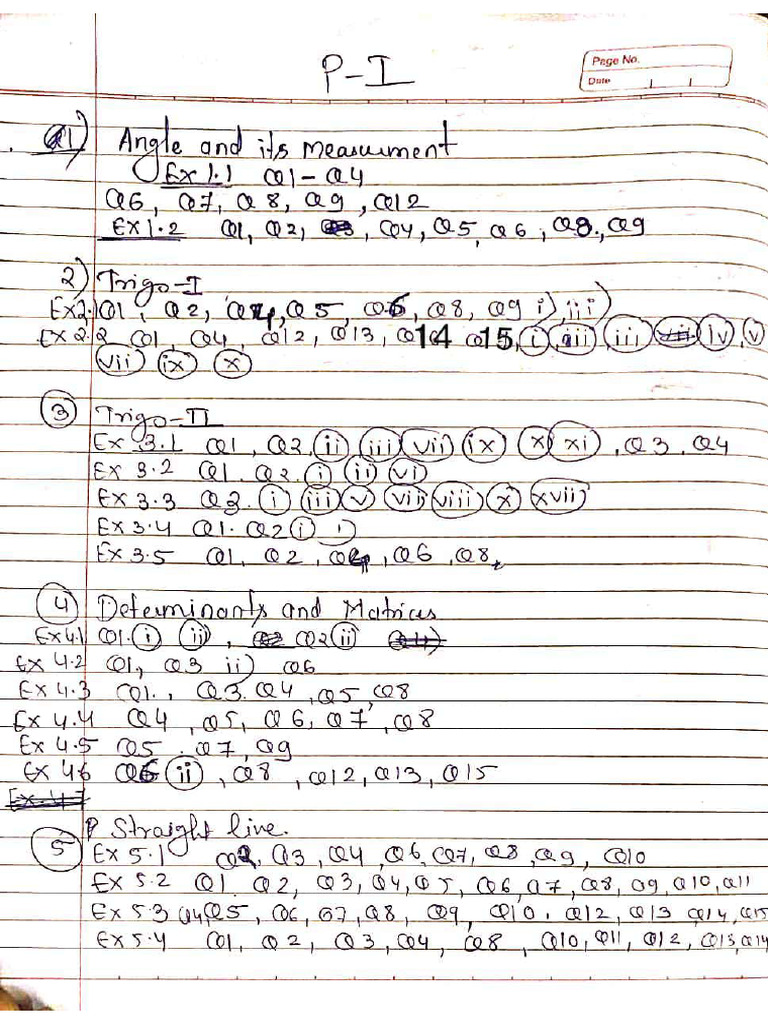 P-I
Page No.
Date
1) Angle and its Measurment
Ex 1.1 Q1 - Q4
Q6, Q7, Q8, Q9, Q12
Ex 1.2 Q1, Q2, Q3, Q4, Q5, Q6, Q8, Q9
2) Trigo-I
Ex2.1 Q1, Q2, Q4, Q5, Q6, Q8, Q9 i), iii)
Ex 2.2 Q1, Q4, Q12, Q13, Q14 Q15, i, ii, iii, iv, v
vii ix x
3 Trigo-II
Ex 3.1 Q1, Q2, ii, iii vii ix x xi, Q3, Q4
Ex 3.2 Q1. Q2. i ii vi
Ex 3.3 Q2. i iii v vii viii x xvii
Ex 3.4 Q1. Q2 i
Ex 3.5 Q1, Q2, Q4, Q6, Q8,
4 Determinants and Matrices
Ex4.1 Q1. i ii, Q2 ii
Ex 4.2 Q1, Q3 ii) Q6
Ex 4.3 Q1., Q3. Q4, Q5, Q8
Ex 4.4 Q4, Q5, Q6, Q7, Q8
Ex 4.5 Q5. Q7, Q9
Ex 4.6 Q6 ii, Q8, Q12, Q13, Q15
5 Straight line.
Ex 5.1 Q2, Q3, Q4, Q6, Q7, Q8, Q9, Q10
Ex 5.2 Q1. Q2, Q3, Q4, Q5, Q6, Q7, Q8, Q9, Q10, Q11
Ex 5.3 Q4, Q5, Q6, Q7, Q8, Q9, Q10. Q12, Q13 Q14, Q15
Ex 5.4 Q1, Q2, Q3, Q4, Q8, Q10, Q11, Q12, Q13, Q14